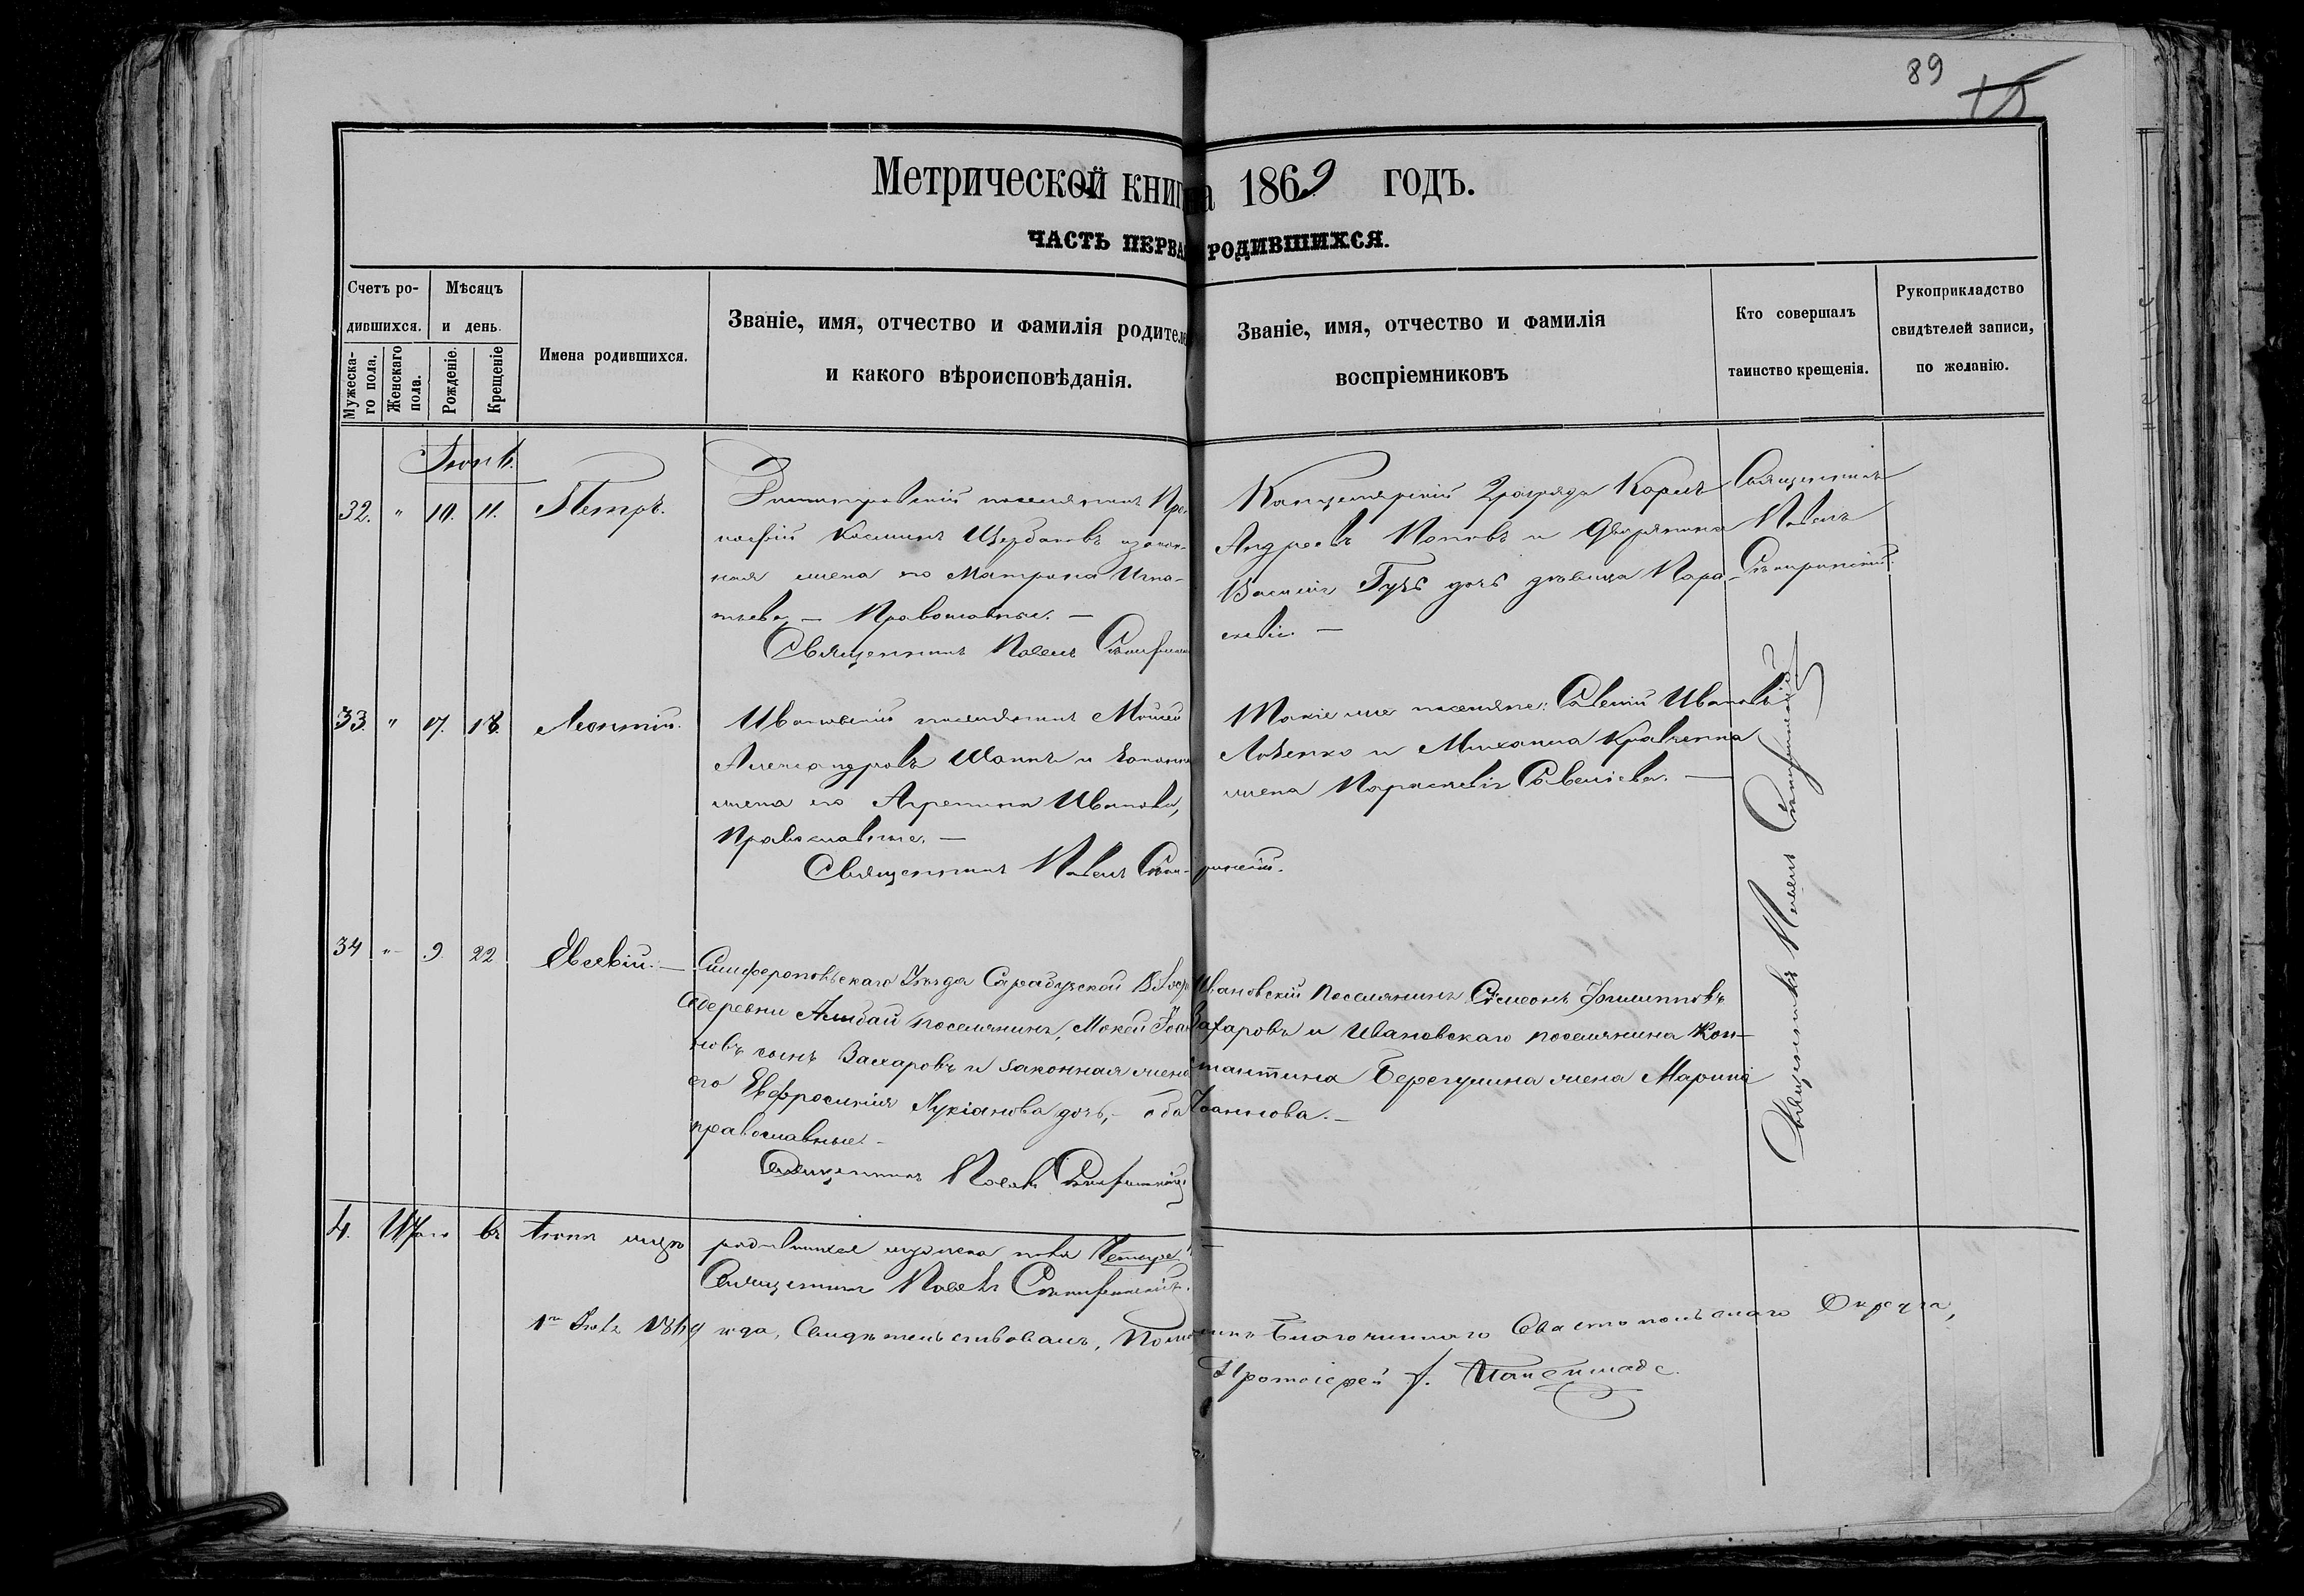 89
15
Метрической книга 1869 годъ.
ЧАСТЬ ПЕРВАЯ РОДИВШИХСЯ.
Счетъ ро-
дившихся.
Мужеска-
го пола.
Женскаго
пола.
Мѣсяцъ
и день.
Рожденіе.
Крещеніе
Имена родившихся.
Званіе, имя, отчество и фамилія родителе
и какого вѣроисповѣданія.
Званіе, имя, отчество и фамилія
воспріемниковъ
Кто совершалъ
таинство крещенія.
Рукоприкладство
свидѣтелей записи,
по желанію.
Іюнь.
32. " 10. 11. Петръ.
поселянинъ Про-
кофій Косминъ Щербаковъ и закон-
ная жена его Матрона Игна-
тьева, — Православные. —
Священникъ Павелъ
Канцелярскій 2 разряда Карлъ
Андреевъ Поповъ и дворянина
Василія Гузъ дочь дѣвица Пара-
скевія. —
Священникъ
Павелъ
33. " 17. 18. Леонтій.
Ивановскій поселянинъ Моисей
Александровъ и законная
жена его Агрепина Иванова,
Православные. —
Священникъ Павелъ
Такіе же поселяне: Савелій Ивановъ
и Михаила Кравченка
жена Параскевія Савеліева. —
34 " 9 22 Евсевій. —
Симферопольскаго Уѣзда Сарабузской Волос
деревни поселянинъ, Мокей Іоан
новъ сынъ Захаровъ и законная жена
его Евфросинія Лукіанова дочь, — оба
православные. —
Священникъ Павелъ
Ивановскій поселянинъ Сѵмеонъ Филипповъ
Захаровъ и Ивановскаго поселянина Кон-
стантина Берегулина жена Марина
Іоаннова. —
Священникъ Павелъ
4. Итого въ Іюнѣ мцѣ родившихся мужеска пола Четыре
Священникъ Павелъ
1го Іюля 1869 года, Свидѣтельствовалъ, Помощникъ Благочиннаго Севастопольскаго Округа,
Протоіерей